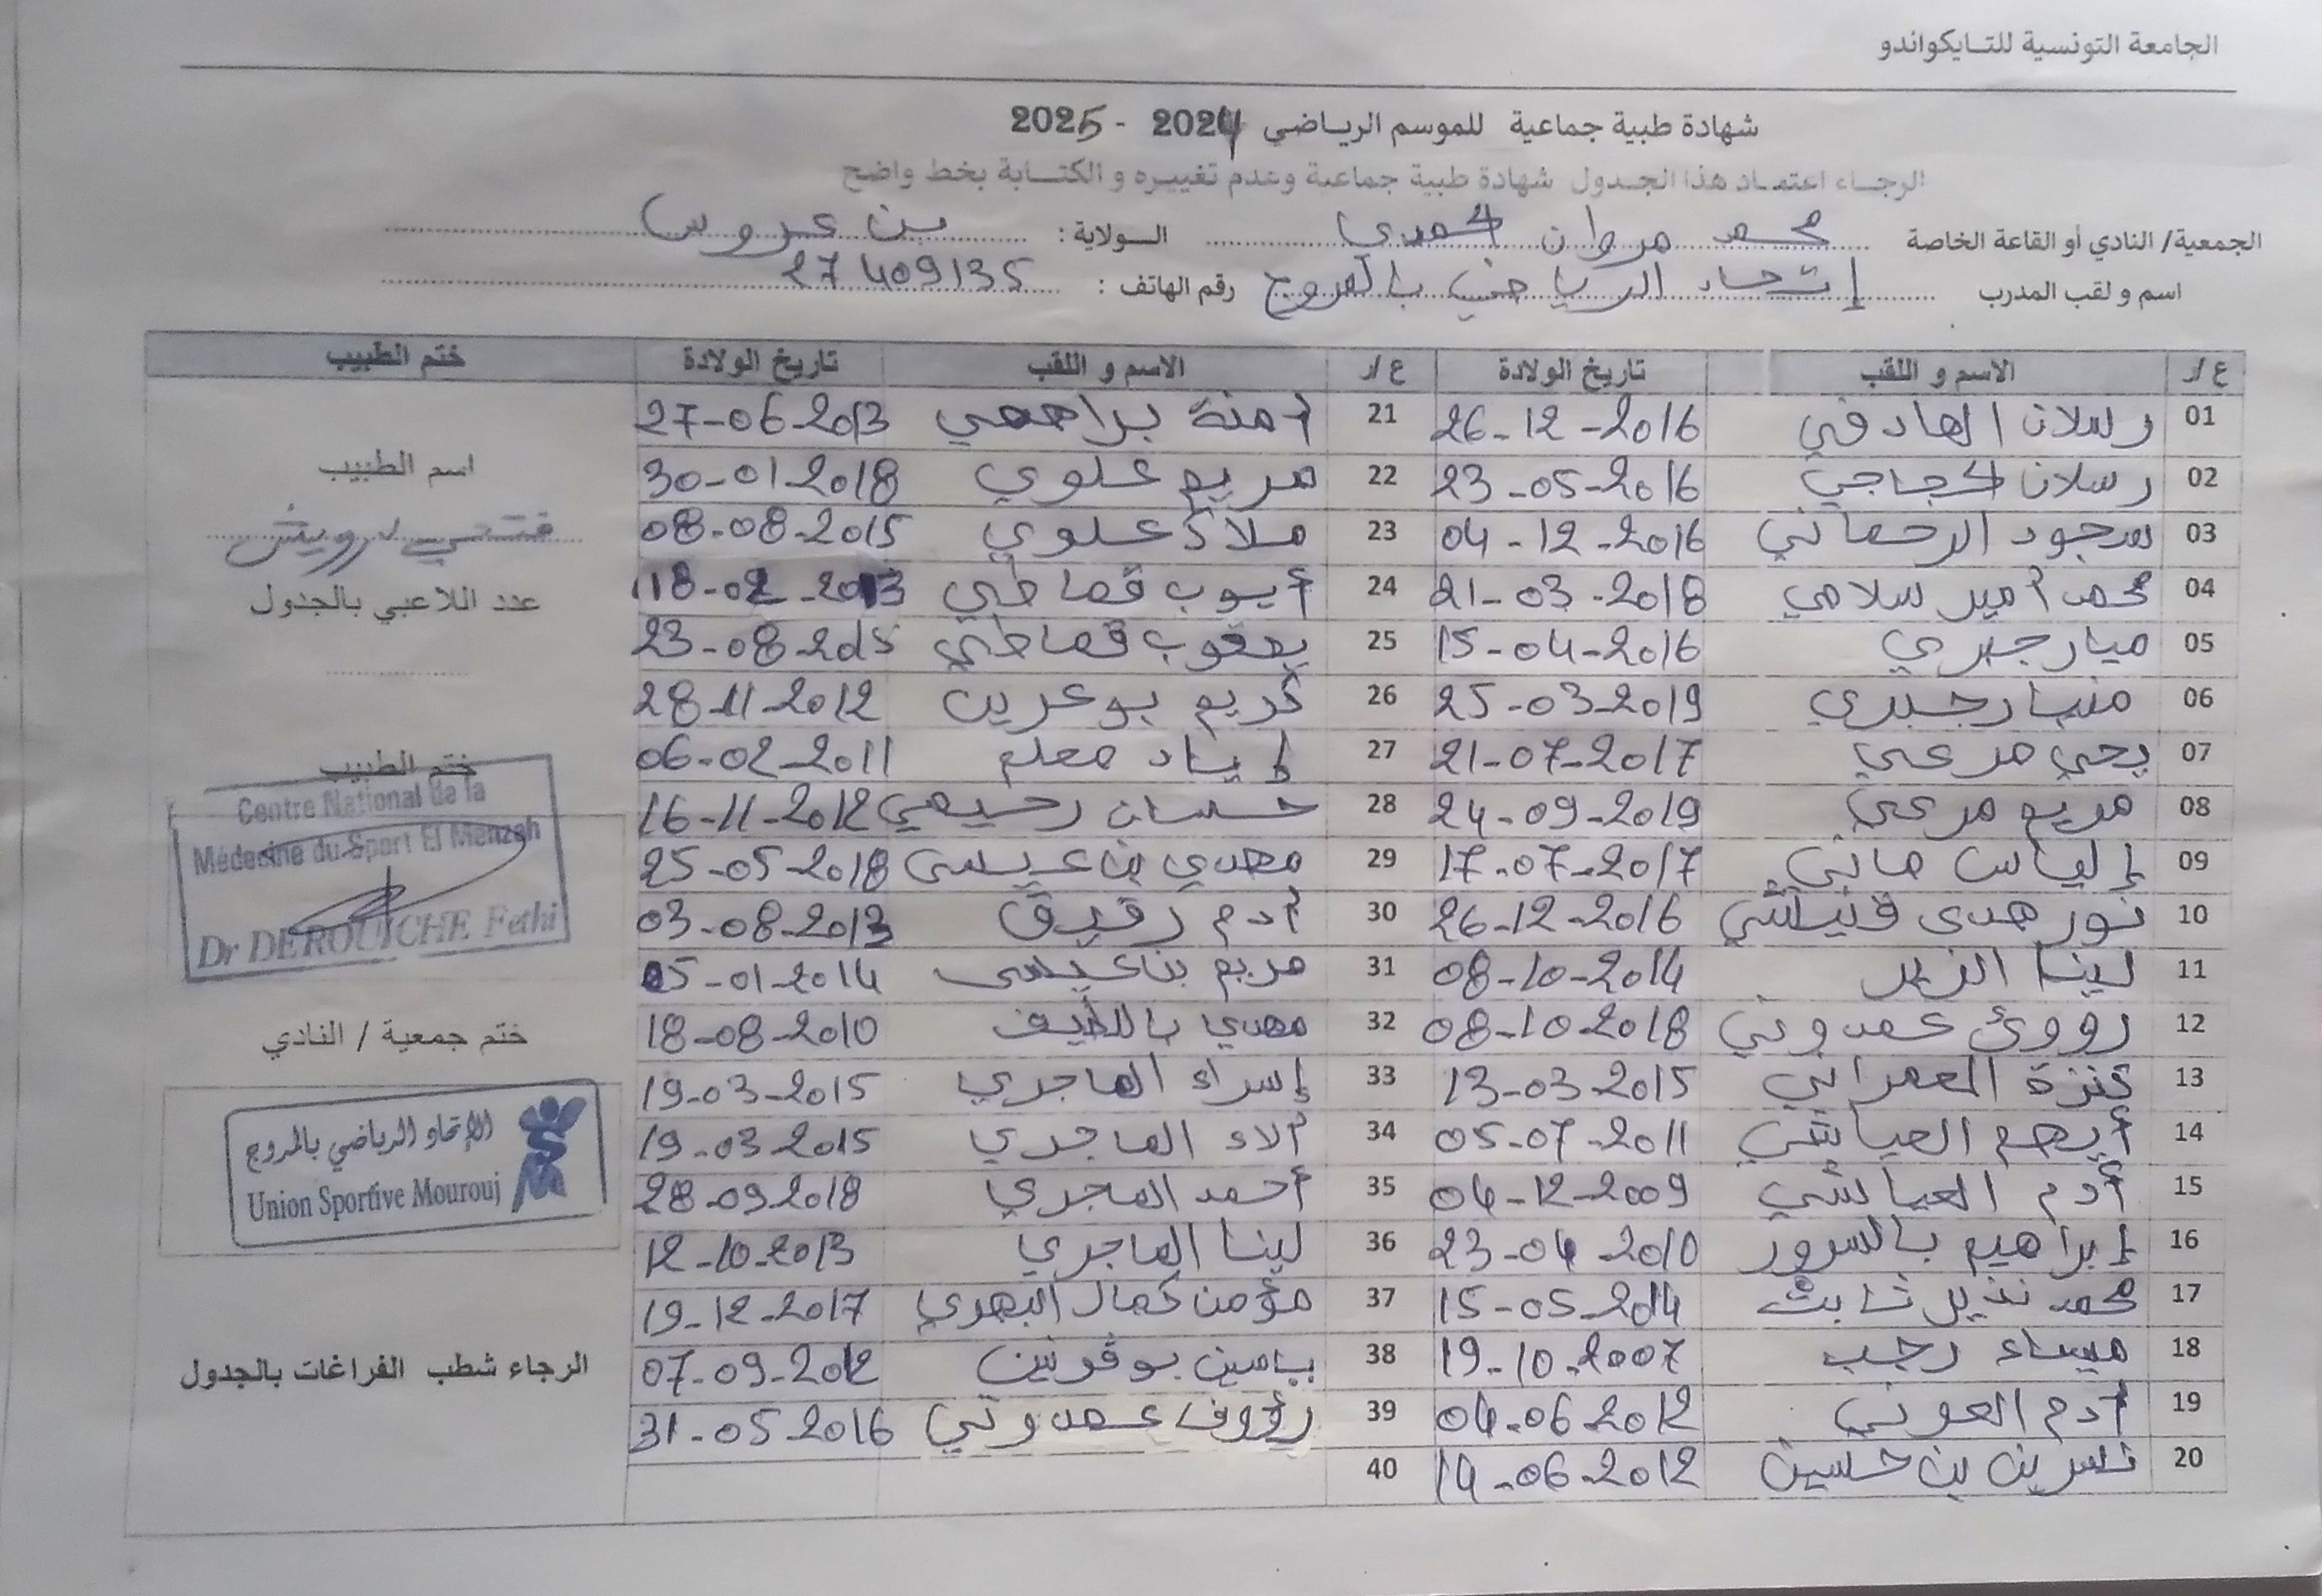 الجامعة التونسية للتايكواندو
شهادة طبية جماعية للموسم الرياضي 2024 - 2025
الرجاء اعتماد هذا الجدول شهادة طبية جماعية وعدم تغييره و الكتابة بخط واضح
الجمعية/ النادي أو القاعة الخاصة محمد مروان الحمدي الولاية: بن عروس
اسم و لقب المدرب إتحاد الرياضي بالمروج رقم الهاتف: 27409135
ع/ر الاسم و اللقب تاريخ الولادة ع/ر الاسم و اللقب تاريخ الولادة ختم الطبيب
01 رسلان الهادفي 26-12-2016 21 آمنة براهمي 27-06-2013
02 رسلان الحجاجي 23-05-2016 22 مريم علوي 30-01-2018
اسم الطبيب
03 سجود الرحماني 04-12-2016 23 ملاك علوي 08-08-2015
فتحي درويش
04 محمد أمير سلامي 21-03-2018 24 أيوب قماطي 18-02-2013
عدد اللاعبي بالجدول
05 ميار جبري 15-04-2016 25 يعقوب قماطي 23-08-2015
06 منيار جبري 25-03-2019 26 كريم بوعرين 28-11-2012
07 يحي مرعي 21-07-2017 27 إياد معلم 06-02-2011
ختم الطبيب
08 مريم مرعي 24-09-2019 28 حسان رحيمي 16-11-2012
Centre National de la
Médecine du Sport El Menzah
09 إلياس ماني 17-07-2017 29 مهدي بن عيسى 25-05-2018
10 نور هدى 26-12-2016 30 آدم رقيق 03-08-2013
Dr DEROUICHE Fethi
11 لينا 08-10-2014 31 مريم بن عيسى 05-01-2014
12 رووئ عمدوني 08-10-2018 32 مهدي باللطيف 18-08-2010
ختم جمعية / النادي
13 كنزة العمراني 13-03-2015 33 إسراء الماجري 19-03-2015
14 أيهم العياشي 05-07-2011 34 آلاء الماجري 19-03-2015
الإتحاد الرياضي بالمروج
15 أدم العياشي 04-12-2009 35 أحمد المجري 28-09-2018
Union Sportive Mourouj
16 إبراهيم بالسرور 23-04-2010 36 لينا الماجري 12-10-2013
17 محمد نذير ثابت 15-05-2014 37 مؤمن كمال 19-12-2017
18 ميساء رجب 19-10-2007 38 ياسين بوقرنين 07-09-2012
الرجاء شطب الفراغات بالجدول
19 آدم العوني 04-06-2012 39 رؤوف عمدوني 31-05-2016
20 نسرين بن حسين 14-06-2012 40